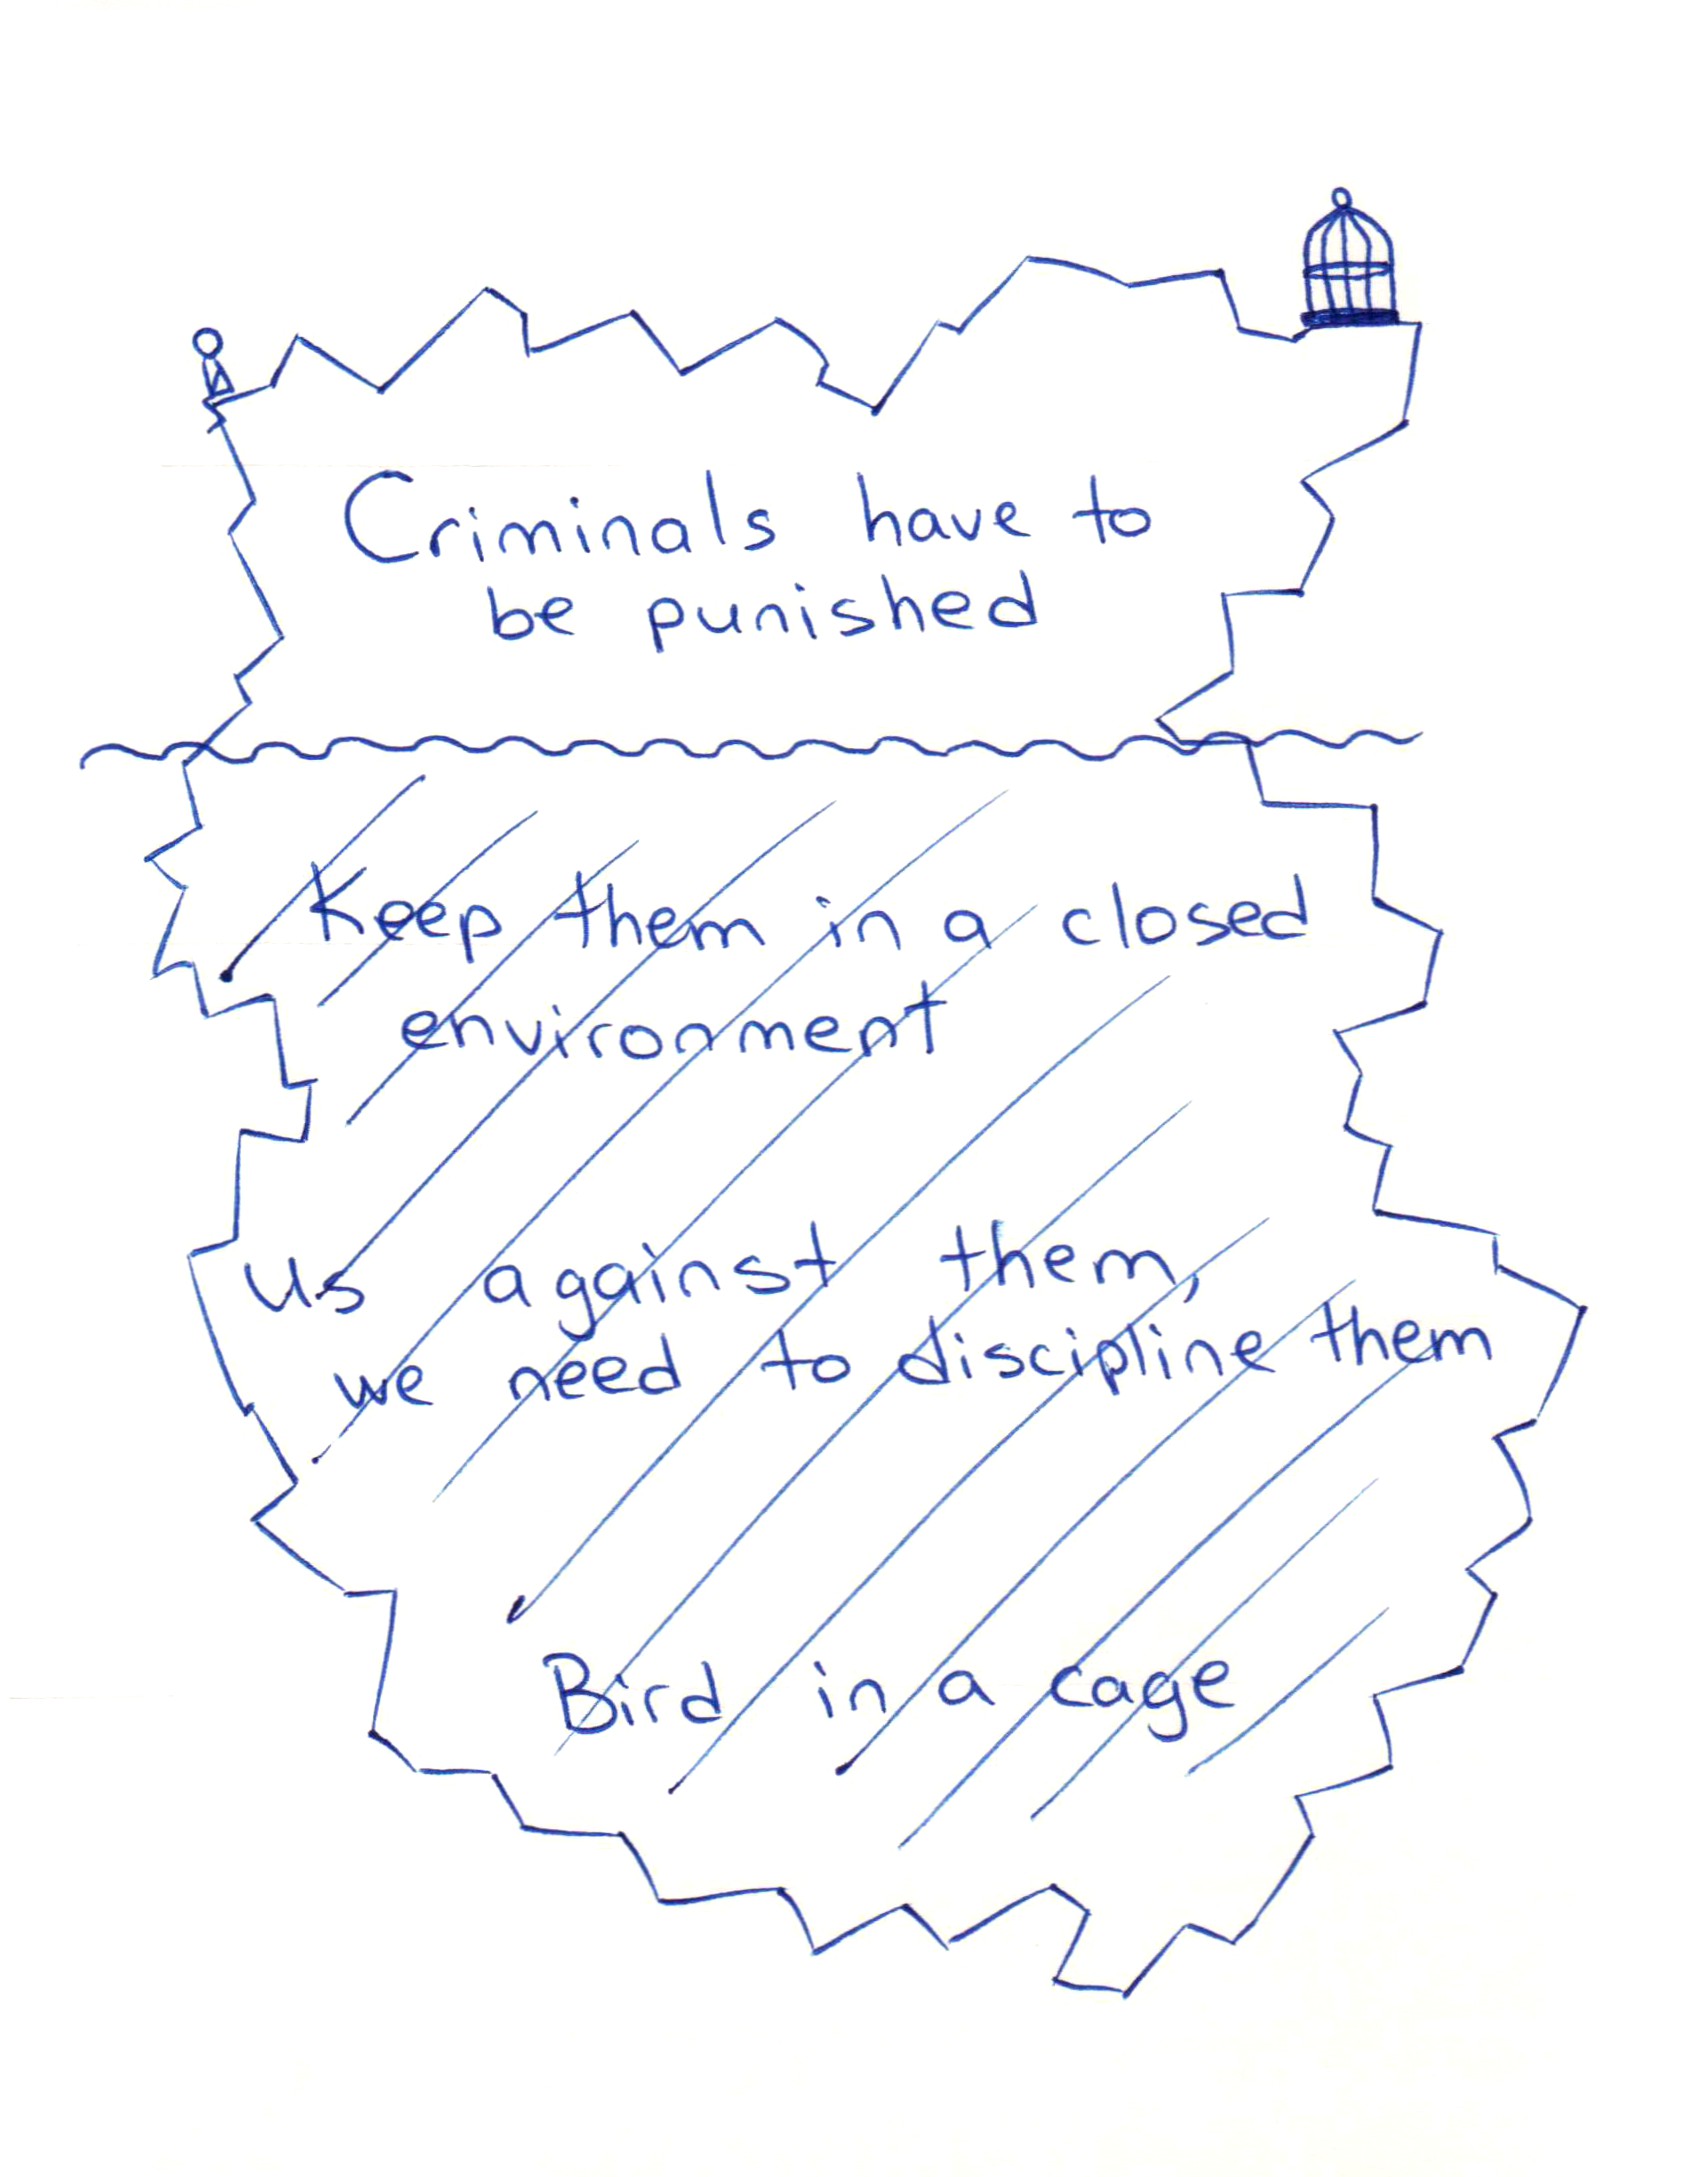 Criminals have to
be punished
Keep them in a closed
environment
Us against them,
we need to discipline them
Bird in a cage